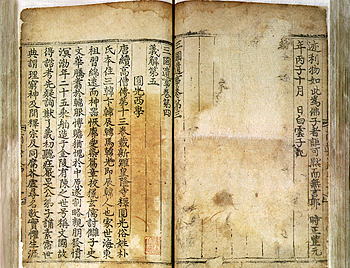 迹利物如此爲佛子者詎可默而無言耶 時正豊元
年丙子十月 日白雲子記
三國遺事卷第三
三國遺事卷第四
義解第五
圓光西學
唐續高僧傳第十三卷載新羅皇隆寺釋圓光俗姓朴
氏本住三韓卞韓辰韓馬韓光即辰韓人也家世海東
祖習綿遠而神器恢廓愛染篇章校獵玄儒討讎子史
文華騰翥於韓服博贍猶愧於中原遂割略親朋發憤
溟渤年二十五乘舶造于金陵有陳之世号稱文國故
得諮考先疑詢猷了義初聽莊嚴旻公弟子講素霑世
典謂理窮神及聞釋宗反同腐芥虛尋名教實懼生涯